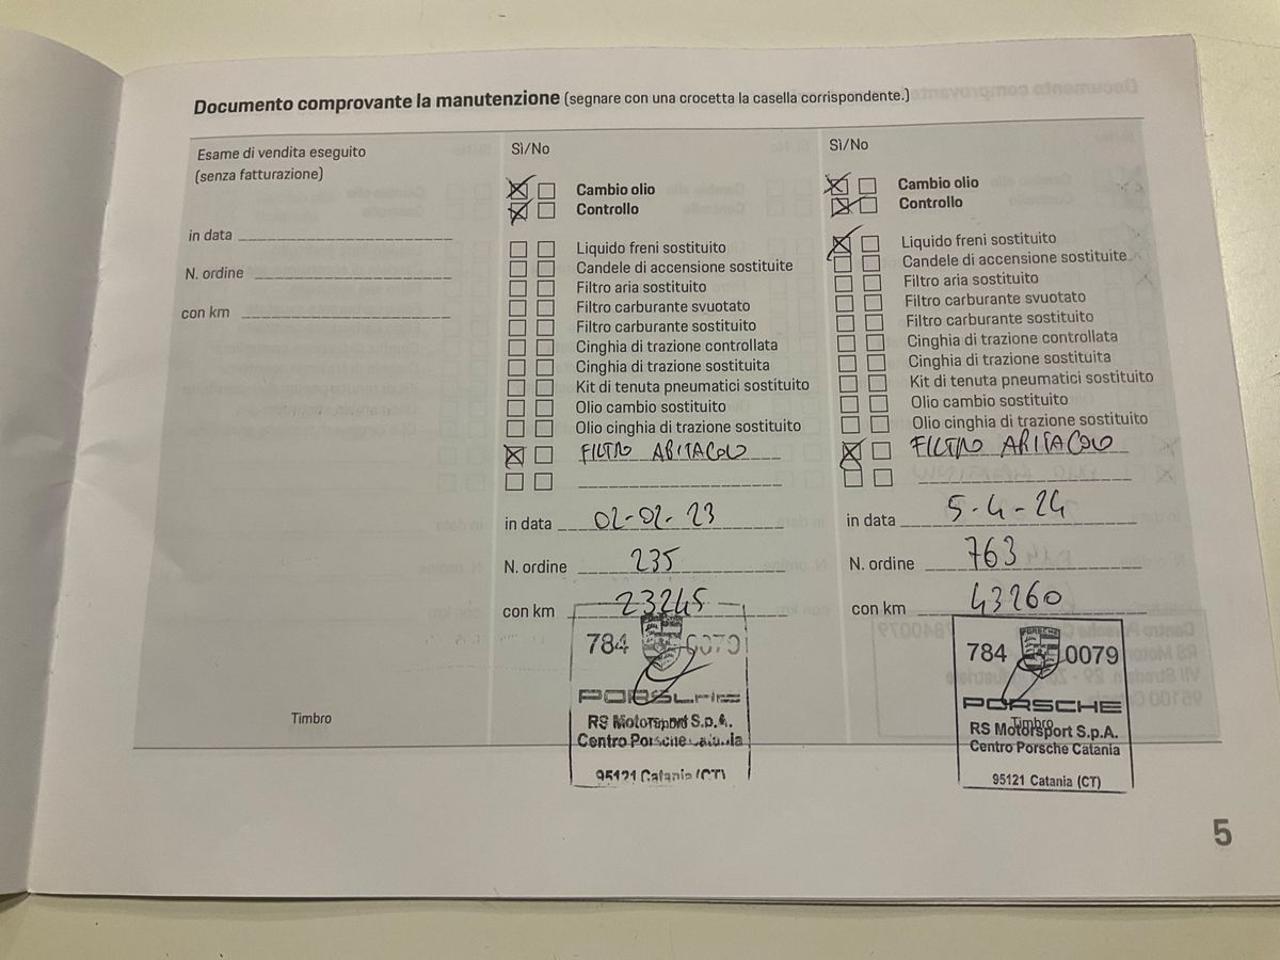 Documento comprovante la manutenzione (segnare con una crocetta la casella corrispondente.)
Esame di vendita eseguito
(senza fatturazione)
in data
N. ordine
con km
Timbro
Sì/No
Cambio olio
Controllo
Liquido freni sostituito
Candele di accensione sostituite
Filtro aria sostituito
Filtro carburante svuotato
Filtro carburante sostituito
Cinghia di trazione controllata
Cinghia di trazione sostituita
Kit di tenuta pneumatici sostituito
Olio cambio sostituito
Olio cinghia di trazione sostituito
FILTRO ABITACOLO
in data 02-02-23
N. ordine 235
con km 23245
784 0079
PORSCHE
RS Motorsport S.p.A.
Centro Porsche Catania
95121 Catania (CT)
Sì/No
Cambio olio
Controllo
Liquido freni sostituito
Candele di accensione sostituite
Filtro aria sostituito
Filtro carburante svuotato
Filtro carburante sostituito
Cinghia di trazione controllata
Cinghia di trazione sostituita
Kit di tenuta pneumatici sostituito
Olio cambio sostituito
Olio cinghia di trazione sostituito
FILTRO ABITACOLO
in data 5-4-24
N. ordine 763
con km 43260
784 0079
PORSCHE
Timbro
RS Motorsport S.p.A.
Centro Porsche Catania
95121 Catania (CT)
5